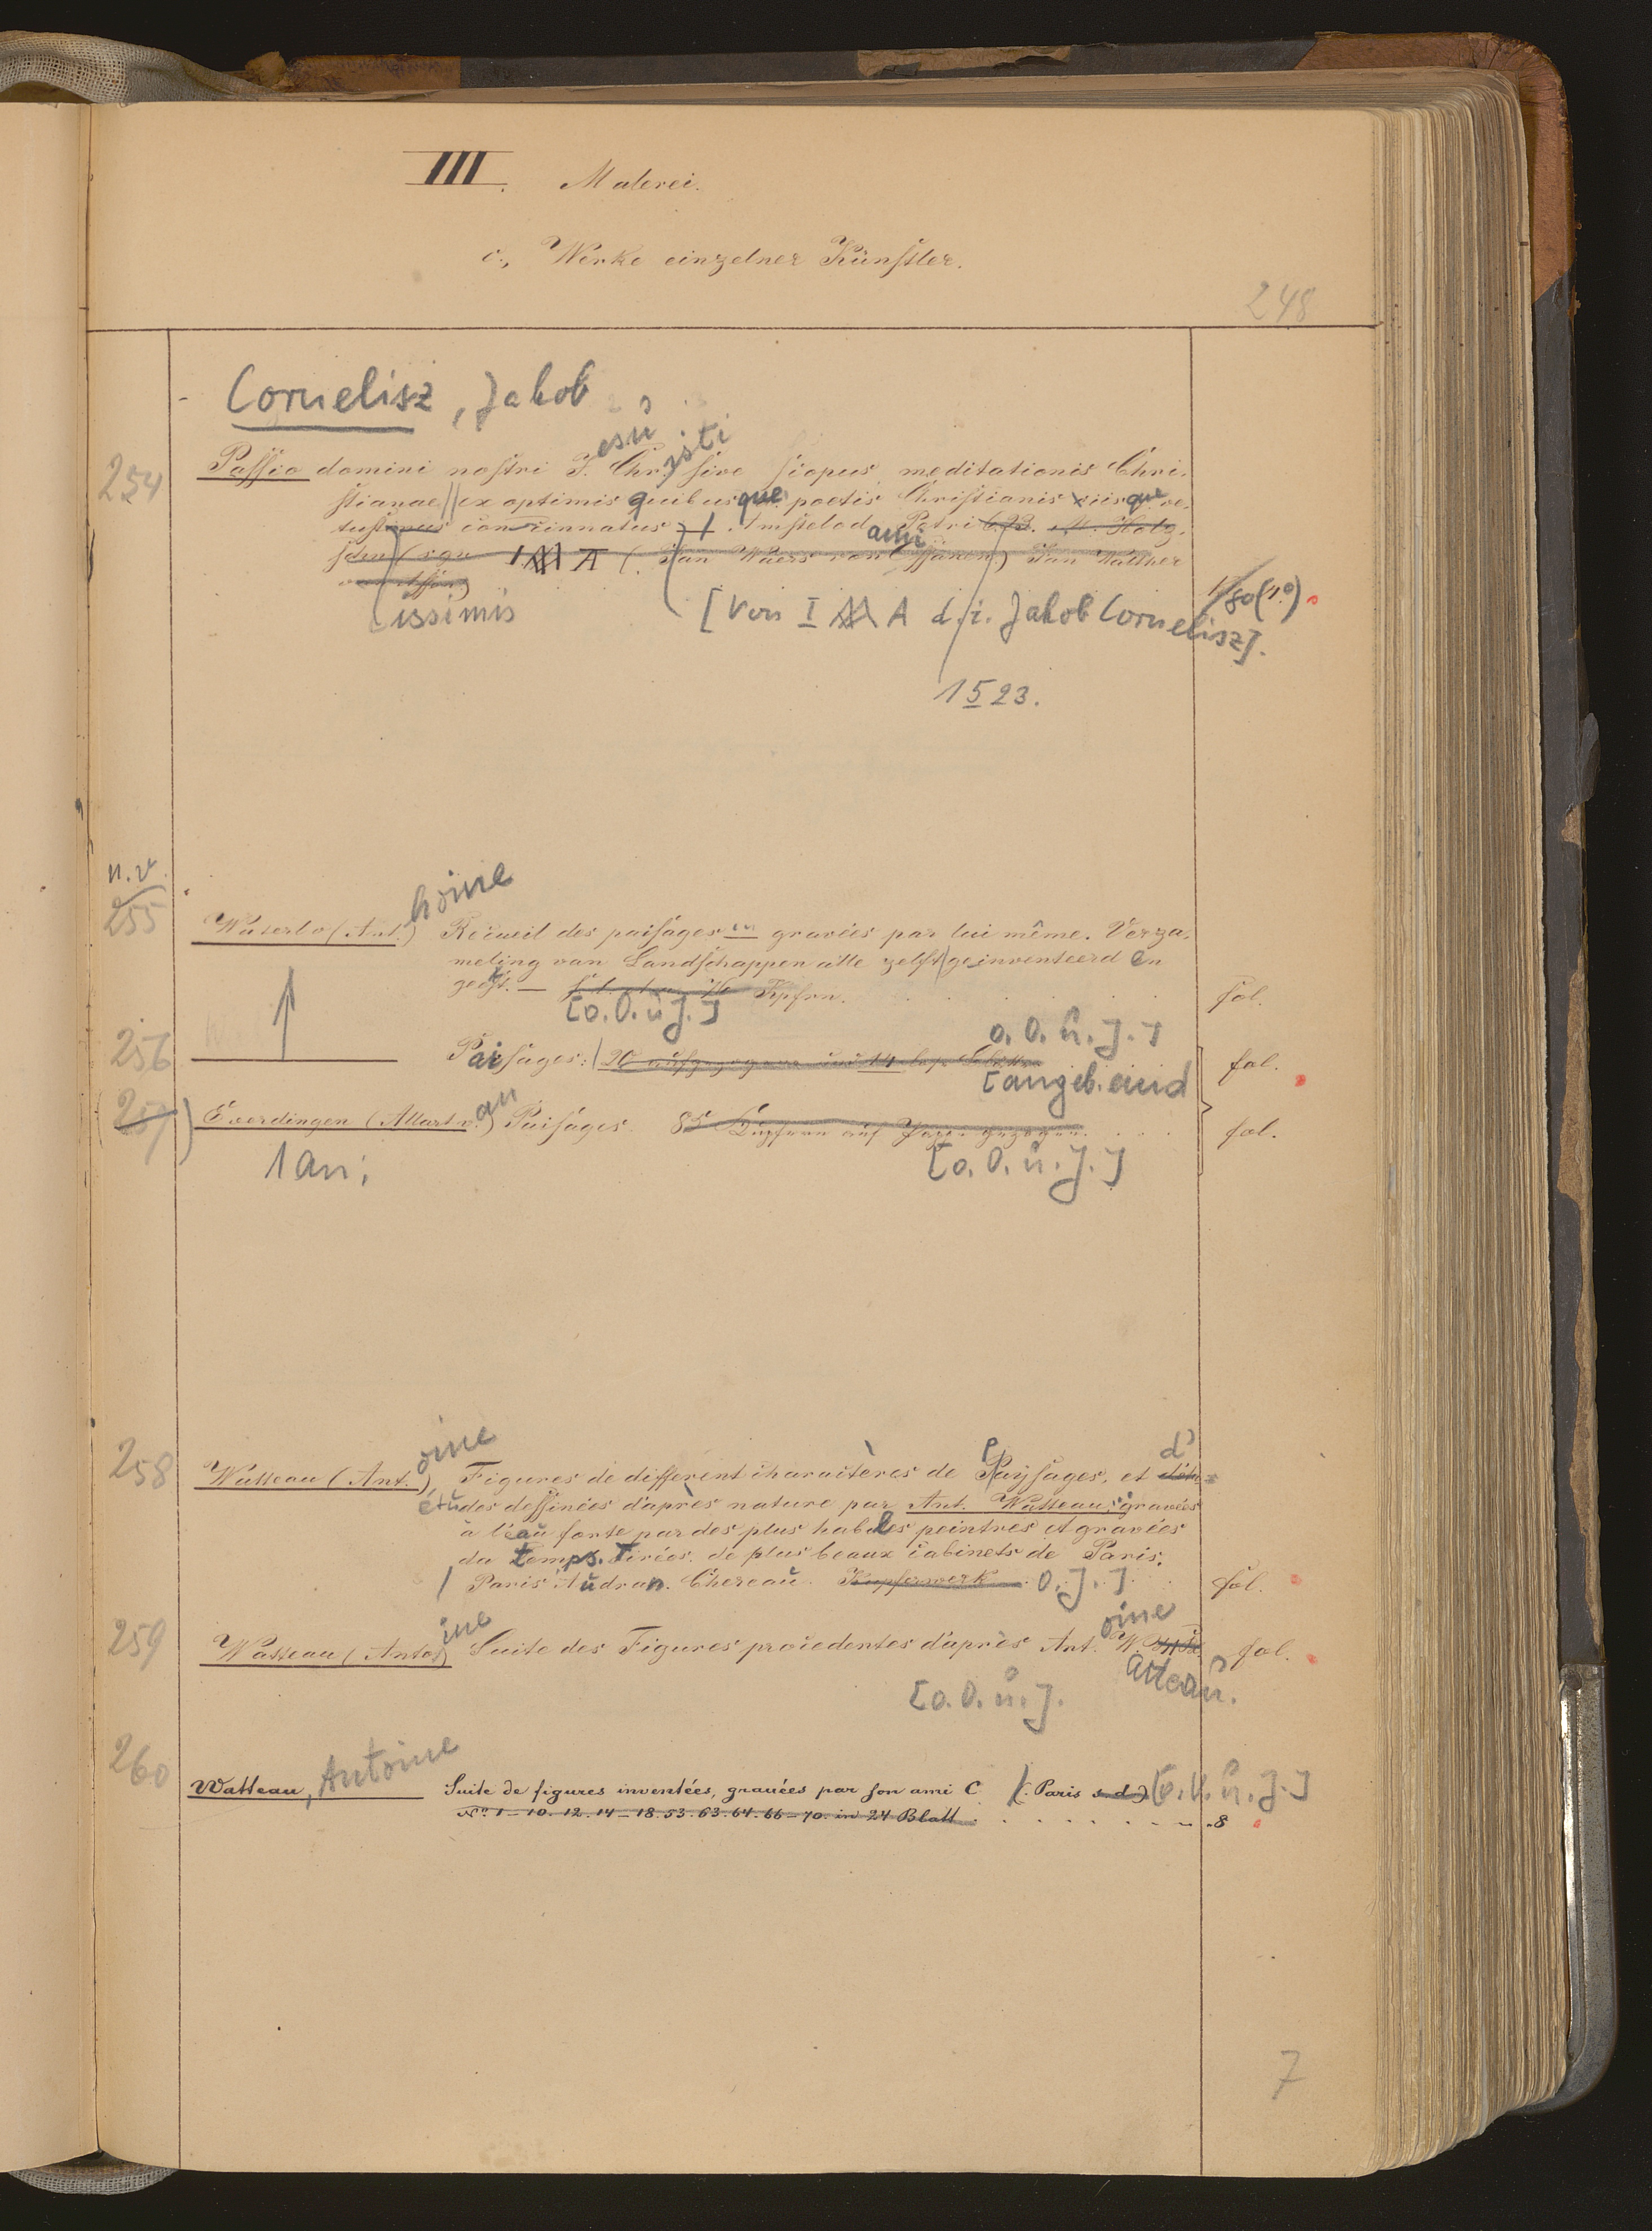 III. Malerei.
c., Werke einzelner Künstler.
248
Cornelisz, Jakob
254 Passio domini nostri J.esu Chr.isti sive scopus meditationis Chri-
stianae ex optimis quibusque poetis Christianis iisque ve-
tustissimis concinnatus. Amstelodami Petri
sden (sign I A (Jan Waers van Assanen) Jan Walther
van Assen)
issimis
[von I A d. i. Jakob Cornelisz].
80 (4°)
1523.
n. v.
255 Waterlo (Ant.hoine) Recueil des paisages en gravées par lui même. Verza-
meling van Landschappen alle zelfs geinventeerd en
geëtst. — Kpfrn. fol.
[o. O. u. J.]
o. O. u. J.]
256 Paisages: 90 aufgezogene und 14 lose Blätter fol.
[angeb. and
257 Everdingen (Allart v.an) Paisages. 85 Kupfern auf Papier gezogen. fol.
1 an:
[o. O. u. J.]
258 Watteau (Ant.oine), Figures de different charactères de Paÿsages, et d'
études dessinées d'après nature par Ant. Watteau, gravées
à l'eau forte par des plus habiles peintres et gravées
du temps. Tirées. de plus beaux cabinets de Paris.
Paris Audran. Chereau. Kupferwerk O. J.] fol.
259 Watteau (Antoine) Suite des Figures procedentes d'après Antoine Watteau. fol.
[o. O. u. J.
260 Watteau, Antoine Suite de figures inventées, gravées par son ami C (: Paris s. d.) [o. O. u. J.]
No. 1 — 10. 12. 14 — 18. 53. 63. 64. 66 — 70. in 24 Blatt 8
7